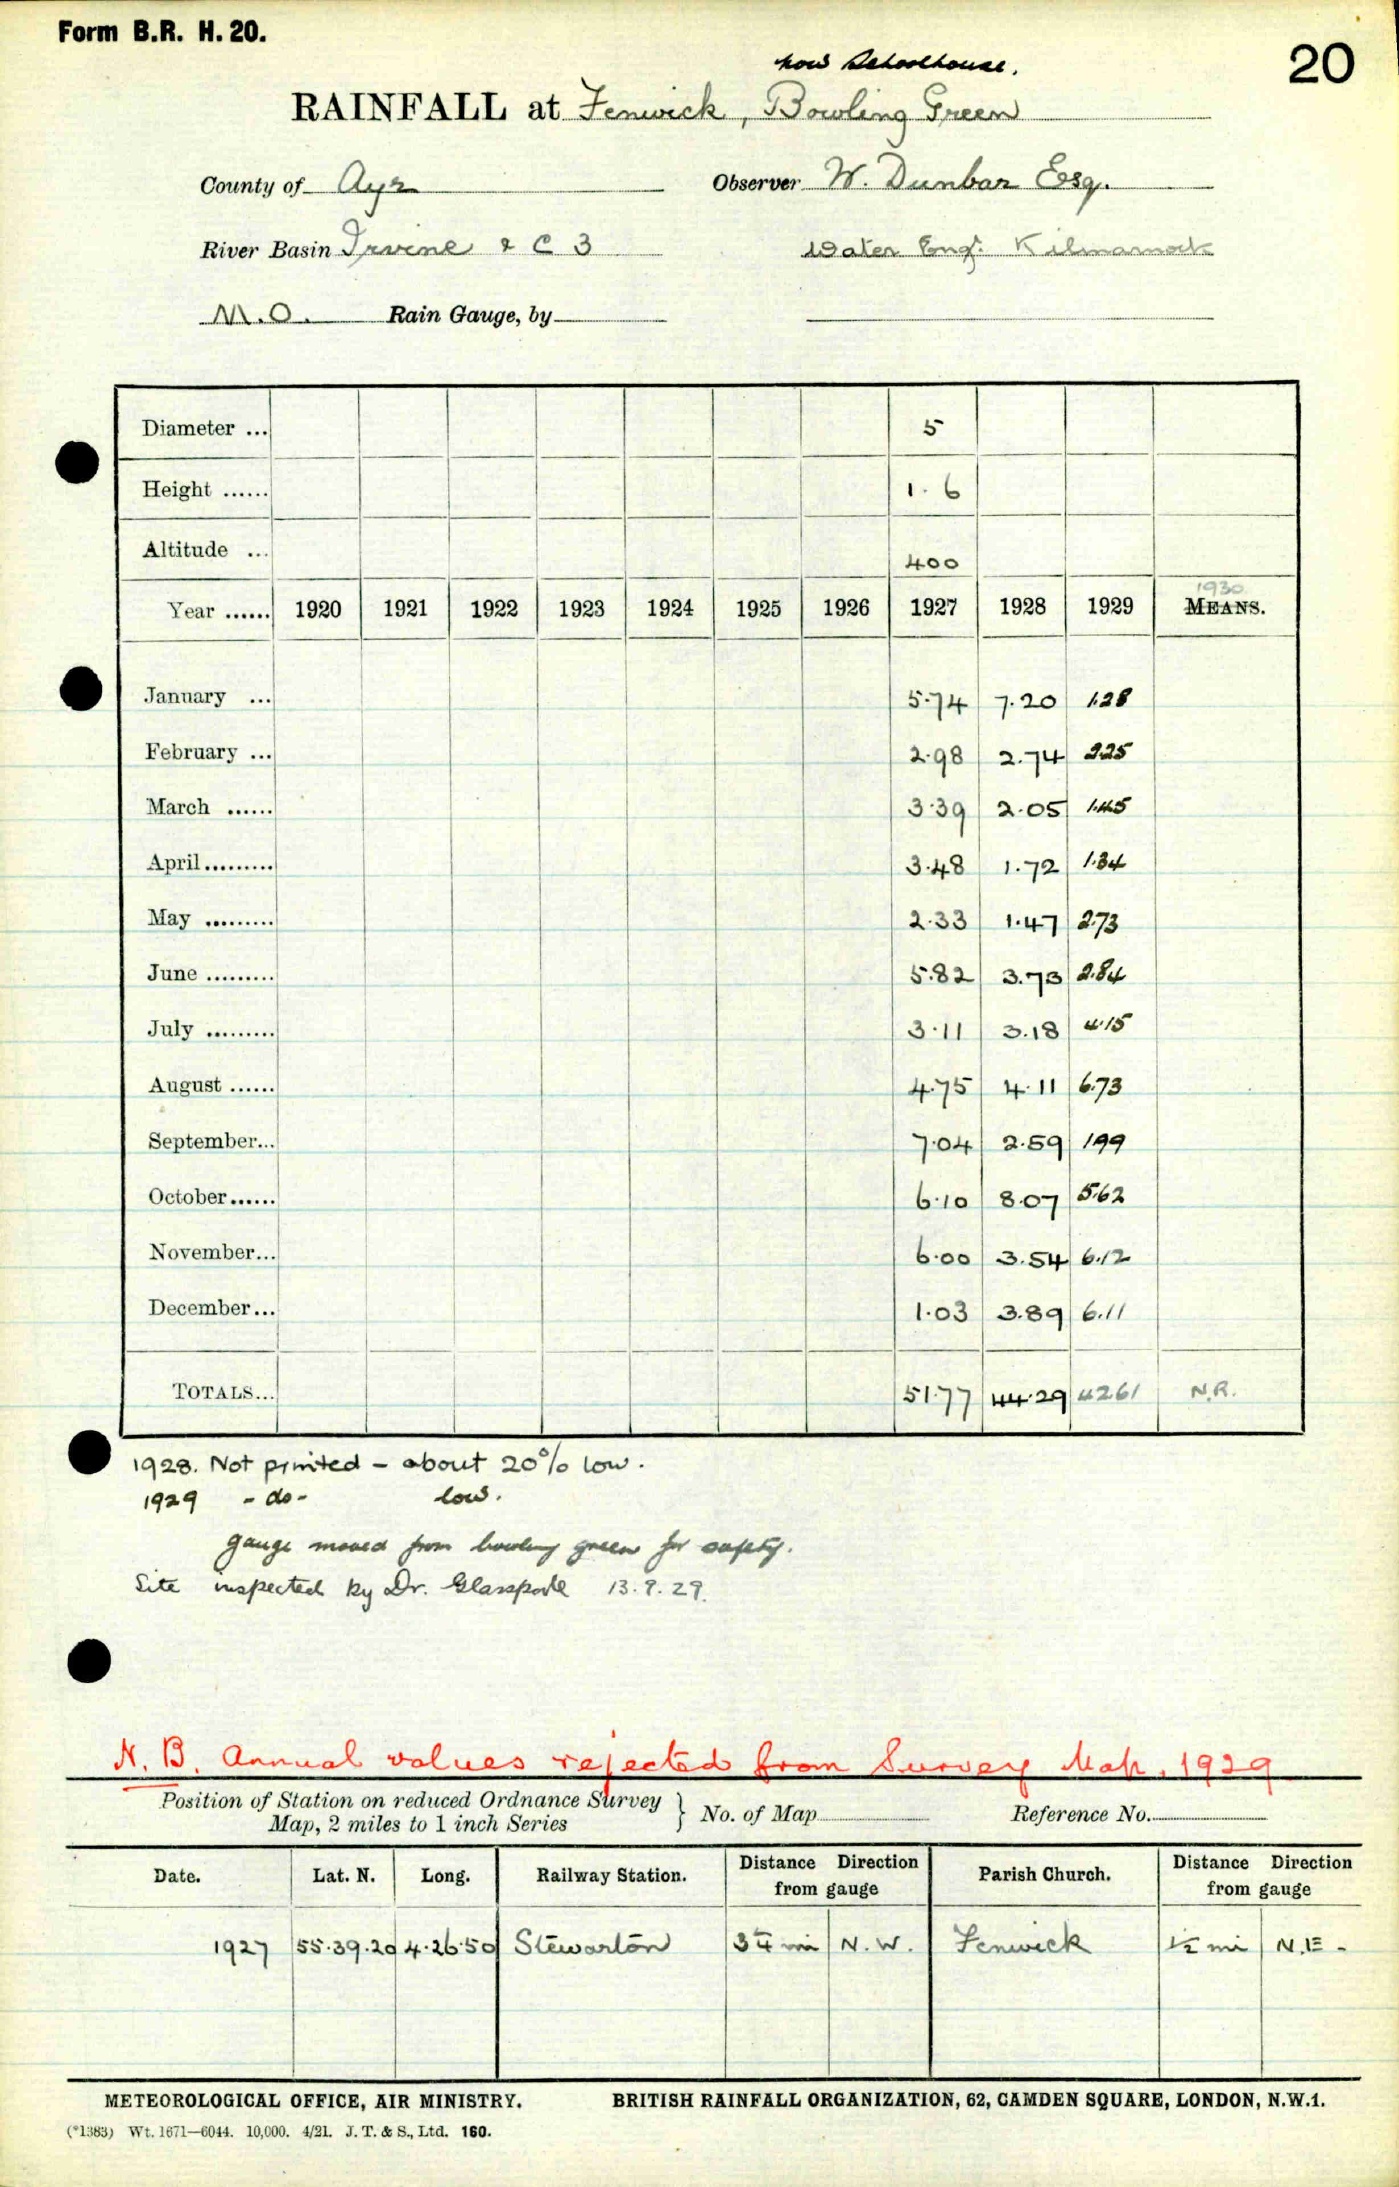 Form B.R. H. 20.
20
now Schoolhouse.
RAINFALL at Fenwick, Bowling Green
County of Ayr Observer W. Dunbar Esq.
River Basin Irvine & C 3 Water Engr. Kilmarnock
M.O. Rain Gauge, by
Diameter ... 5
Height ...... 1.6
Altitude ... 400
1930
Year ...... 1920 1921 1922 1923 1924 1925 1926 1927 1928 1929 MEANS.
January ... 5.74 7.20 1.28
February ... 2.98 2.74 2.25
March ...... 3.39 2.05 1.45
April ......... 3.48 1.72 1.34
May ......... 2.33 1.47 2.73
June ......... 5.82 3.73 2.84
July ......... 3.11 3.18 4.15
August ...... 4.75 4.11 6.73
September... 7.04 2.59 1.99
October...... 6.10 8.07 5.62
November... 6.00 3.54 6.12
December... 1.03 3.89 6.11
TOTALS... 51.77 44.29 42.61 N.R.
1928. Not printed – about 20% low.
1929 - do - low.
gauge moved from bowling green for safety.
Site inspected by Dr. Glasspoole 13.9.29.
N.B. Annual values rejected from Survey Map, 1929
Position of Station on reduced Ordnance Survey
Map, 2 miles to 1 inch Series } No. of Map Reference No.
Date. Lat. N. Long. Railway Station. Distance Direction from gauge Parish Church. Distance Direction from gauge
1927 55.39.20 4.26.50 Stewarton mi N.W. Fenwick ½ mi N.E.
METEOROLOGICAL OFFICE, AIR MINISTRY. BRITISH RAINFALL ORGANIZATION, 62, CAMDEN SQUARE, LONDON, N.W.1.
(*1383) Wt. 1671—6044. 10,000. 4/21. J. T. & S., Ltd. 160.